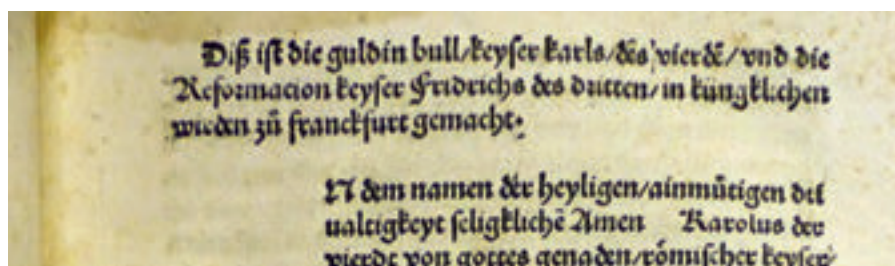 Diß ist die guldin bull/keyser karls/des vierdē/vnd die
Reformacion keyser Fridrichs des dritten/in küngklichen
wirden zů franckfurt gemacht.
N dem namen der heyligen/ainmůtigen dri
ualtigkeyt seligklichē Amen Karolus der
vierde von gottes genaden/römischer keyser/